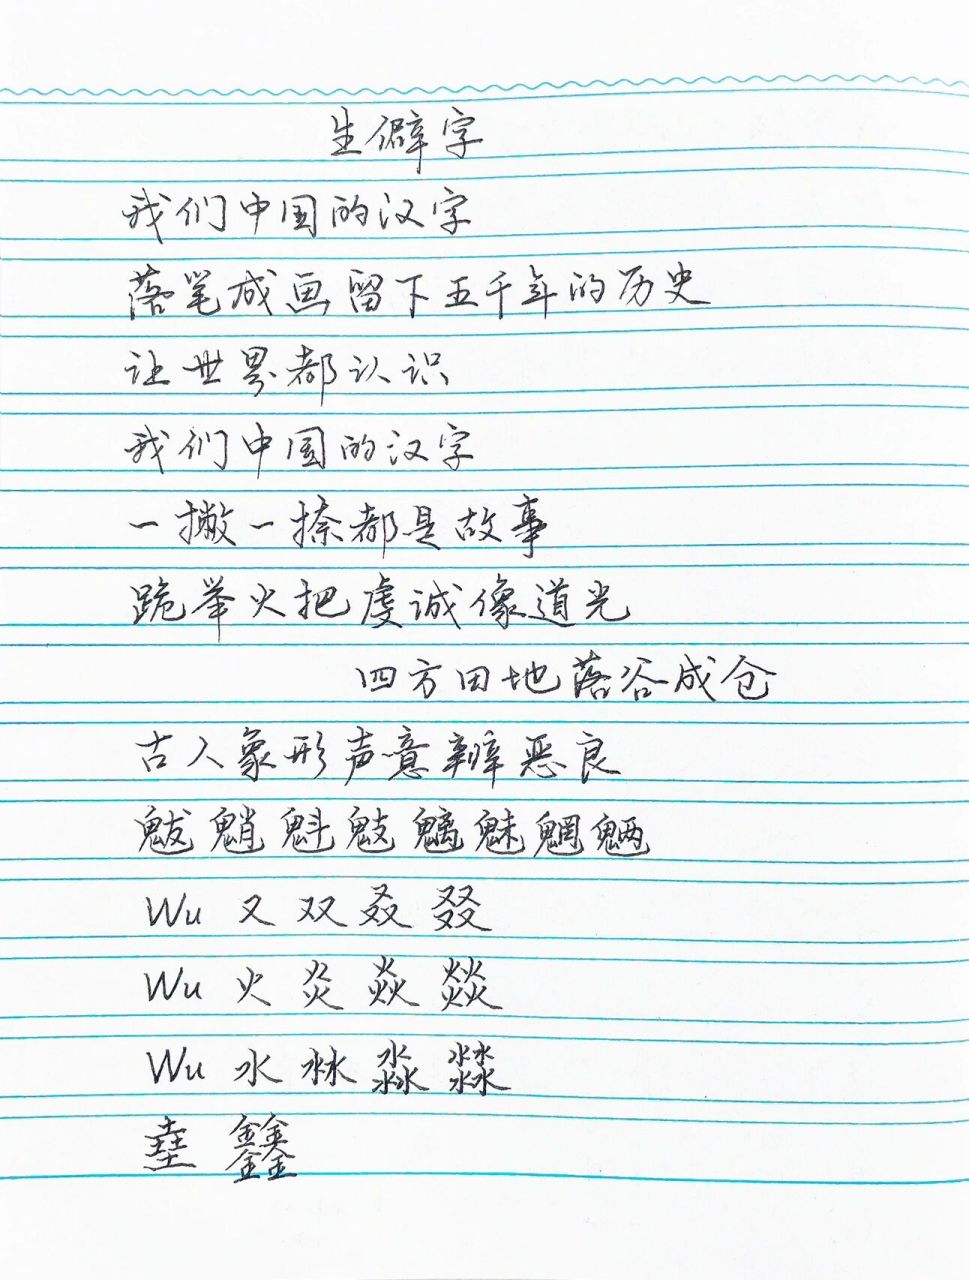 生僻字
我们中国的汉字
落笔成画留下五千年的历史
让世界都认识
我们中国的汉字
一撇一捺都是故事
跪举火把虔诚像道光
四方田地落谷成仓
古人象形声意辨恶良
魃魈魁鬾魑魅魍魉
Wu 又双叒叕
Wu 火炎焱燚
Wu 水沝淼㵘
㙓𨰻